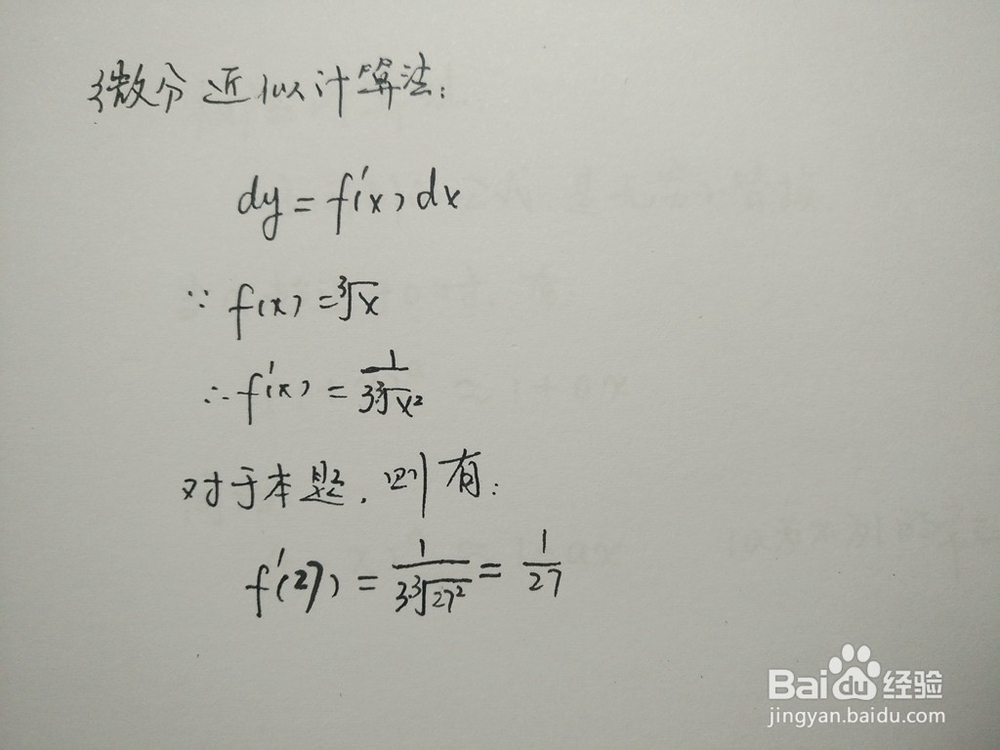 微分近似计算法:
dy = f'(x) dx
∵ f(x) = ∛x
∴ f'(x) = 1/(3∛x²)
对于本题,则有:
f'(27) = 1/(3·∛27²) = 1/27
Baidu经验
jingyan.baidu.com